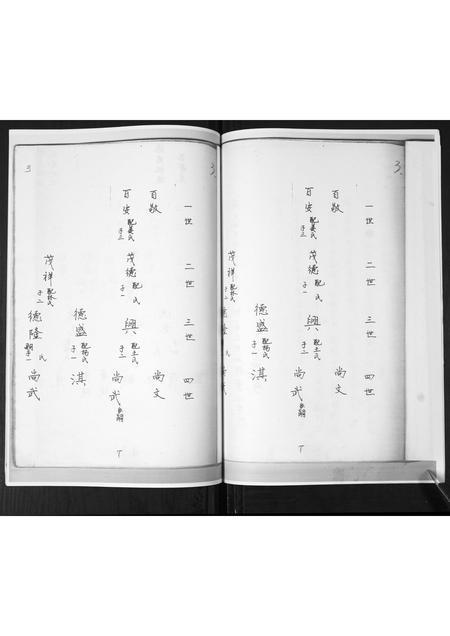 3
一世 二世 三世 四世
百敬
尚文
百安 配姜氏 子三 茂德 配 氏 子一 興 配王氏 子二 尚武
德盛 配楊氏 子一 淇
茂祥 配林氏 子二 德隆 氏 尚武
3
T
3
一世 二世 三世 四世
百敬
尚文
百安 配姜氏 子三 茂德 配 氏 子一 興 配王氏 子二 尚武
德盛 配楊氏 子一 淇
茂祥 配林氏 子二
T